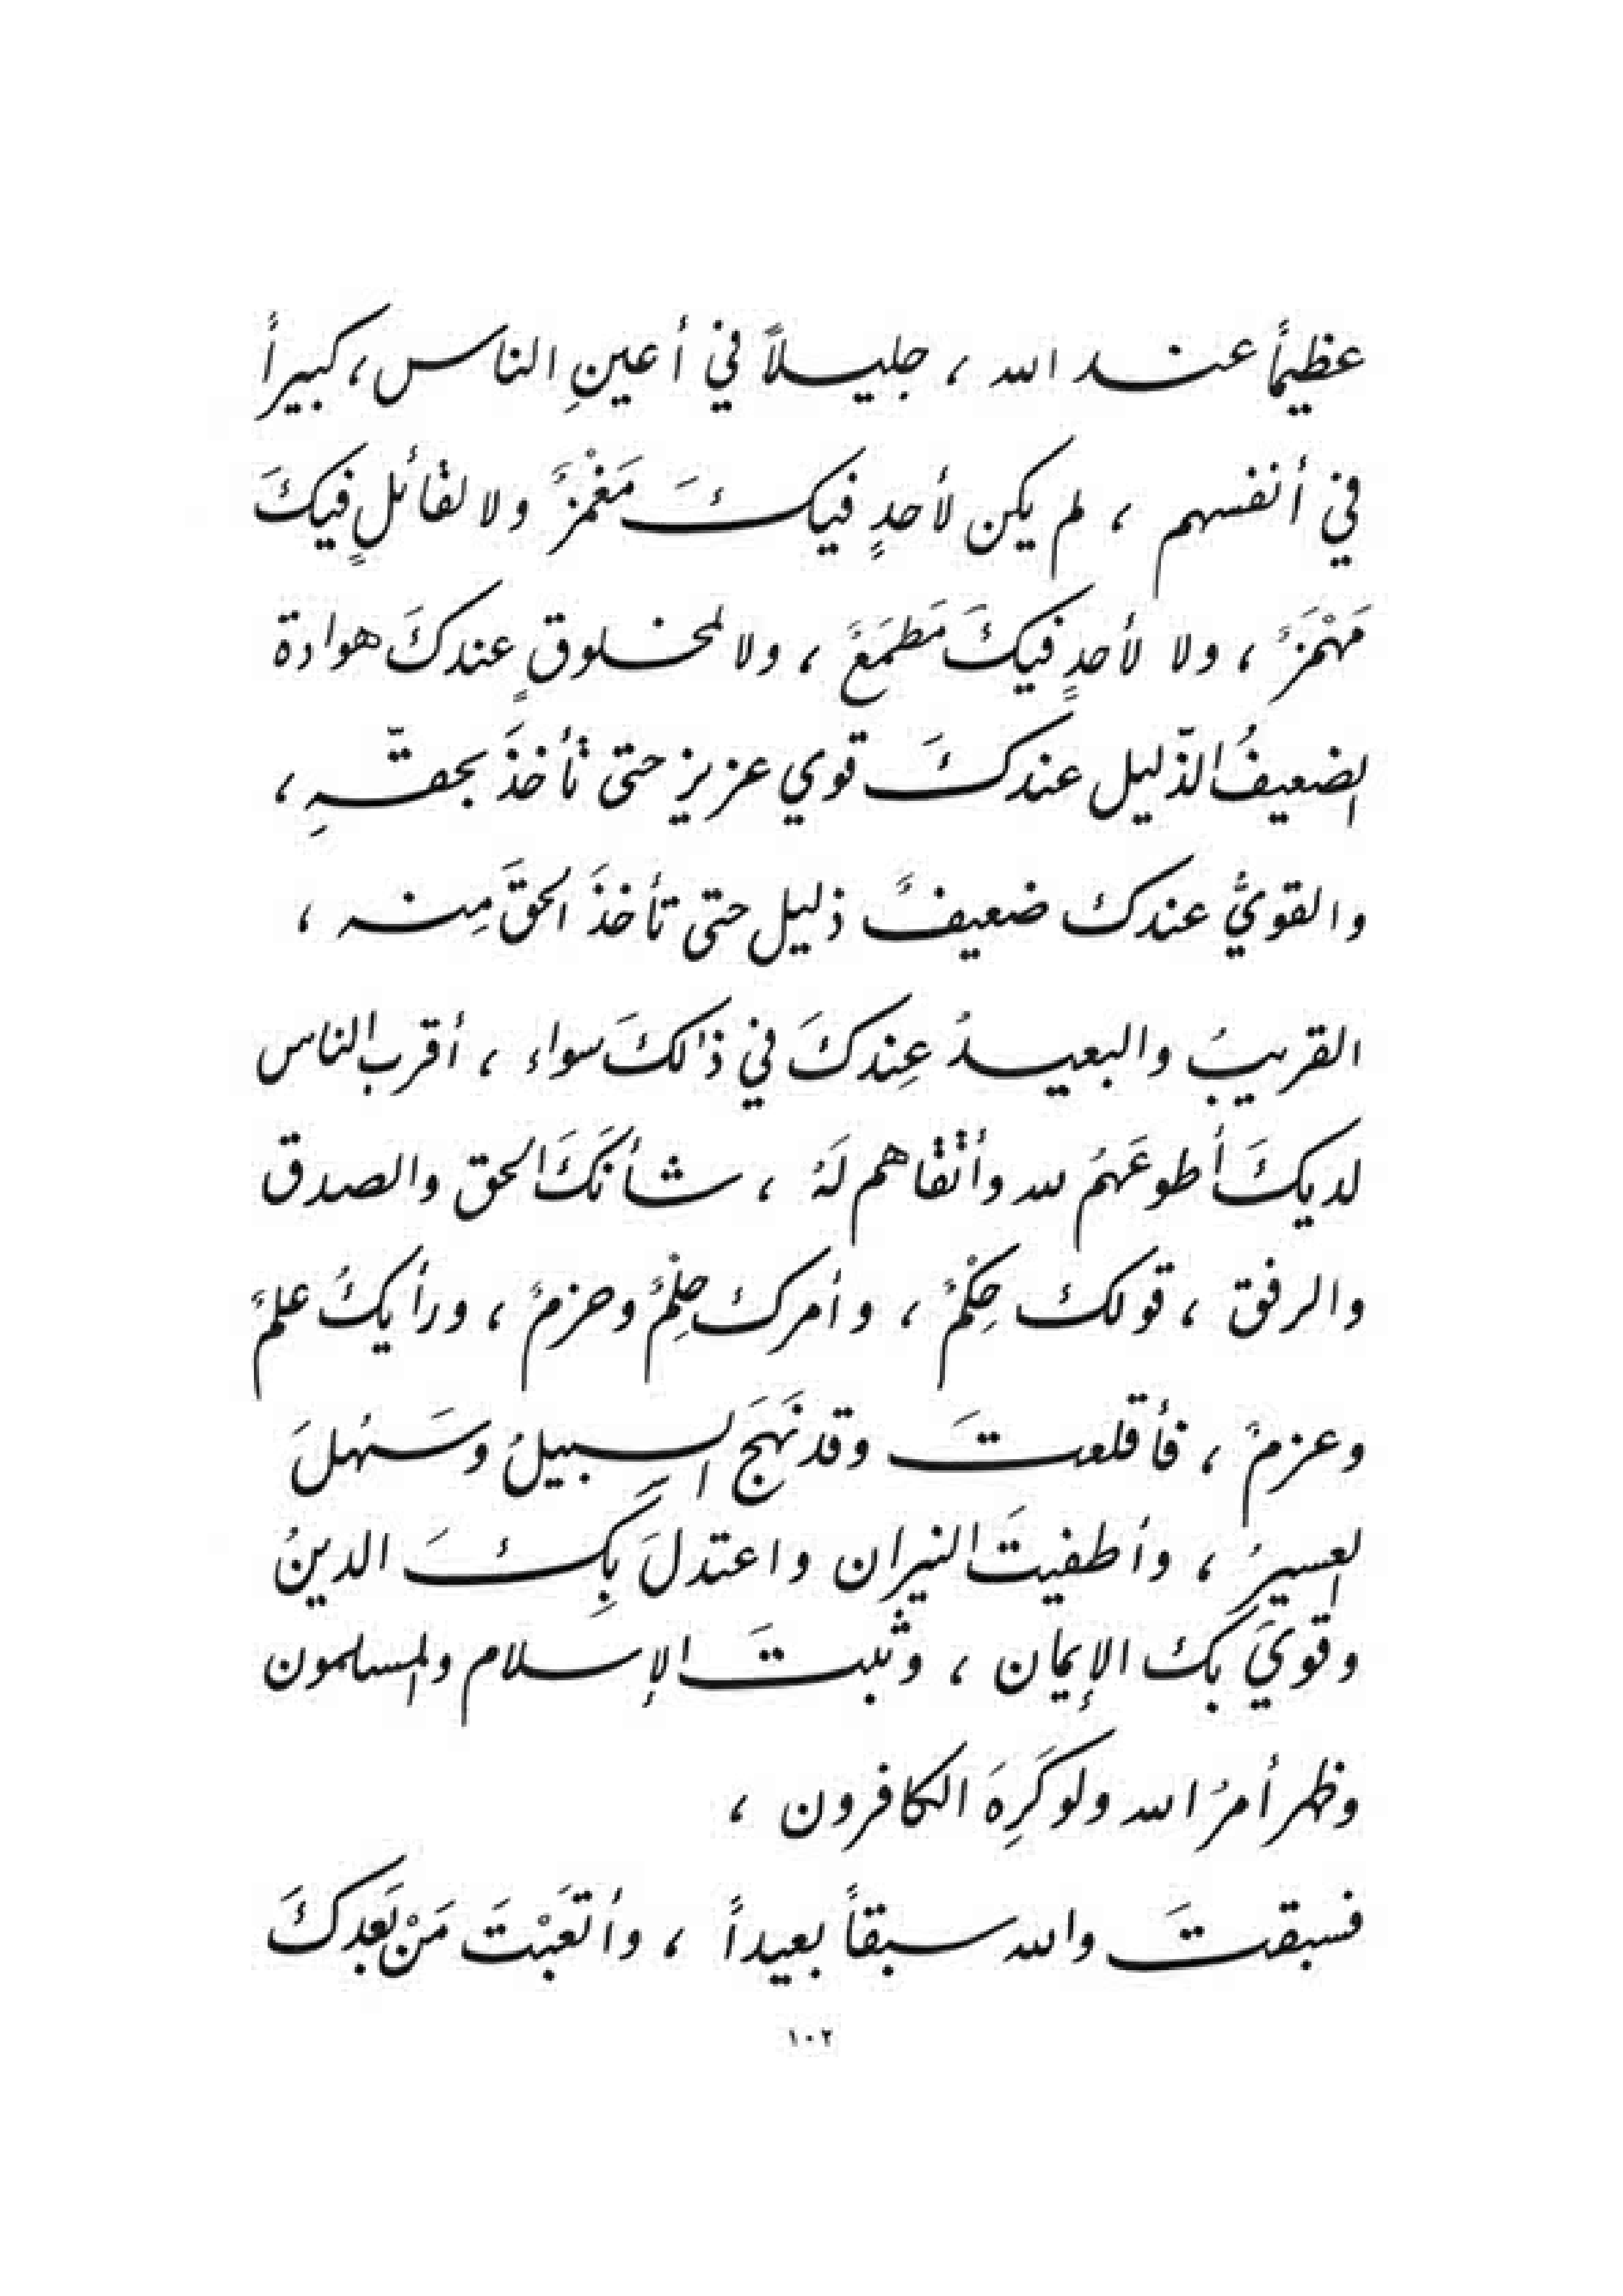 عظيماً عند الله ، جليلاً في أعينِ الناس ، كبيراً
في أنفسهم ، لم يكن لأحدٍ فيكَ مَغْمَزٌ ولا لقائلٍ فيكَ
مَهْمَزٌ ، ولا لأحدٍ فيكَ مَطمَعٌ ، ولا لمخلوقٍ عندكَ هوادة
الضعيفُ الذّليل عندكَ قوي عزيز حتى تأخذَ بحقّهِ ،
والقويُّ عندك ضعيفٌ ذليل حتى تأخذَ الحقَّ مِنه ،
القريبُ والبعيدُ عِندكَ في ذالكَ سواء ، أقرب الناس
لديكَ أطوعَهُم لله وأتْقاهم لَهُ ، شأنَكَ الحق والصدق
والرفق ، قولك حِكْمٌ ، وأمرك حِلْمٌ وحزمٌ ، ورأيكُ علمٌ
وعزمٌ ، فأقلعتَ وقد نَهَجَ السبيلُ وسَهُلَ
العسيرُ ، وأطفيتَ النيران واعتدلَ بِكَ الدينُ
وقويَ بك الإيمان ، وثبتَ الإسلام والمسلمون
وظهر أمرُ الله ولو كَرِهَ الكافرون ،
فسبقتَ والله سبقاً بعيداً ، وأتعَبْتَ مَنْ بَعدكَ
١٠٢